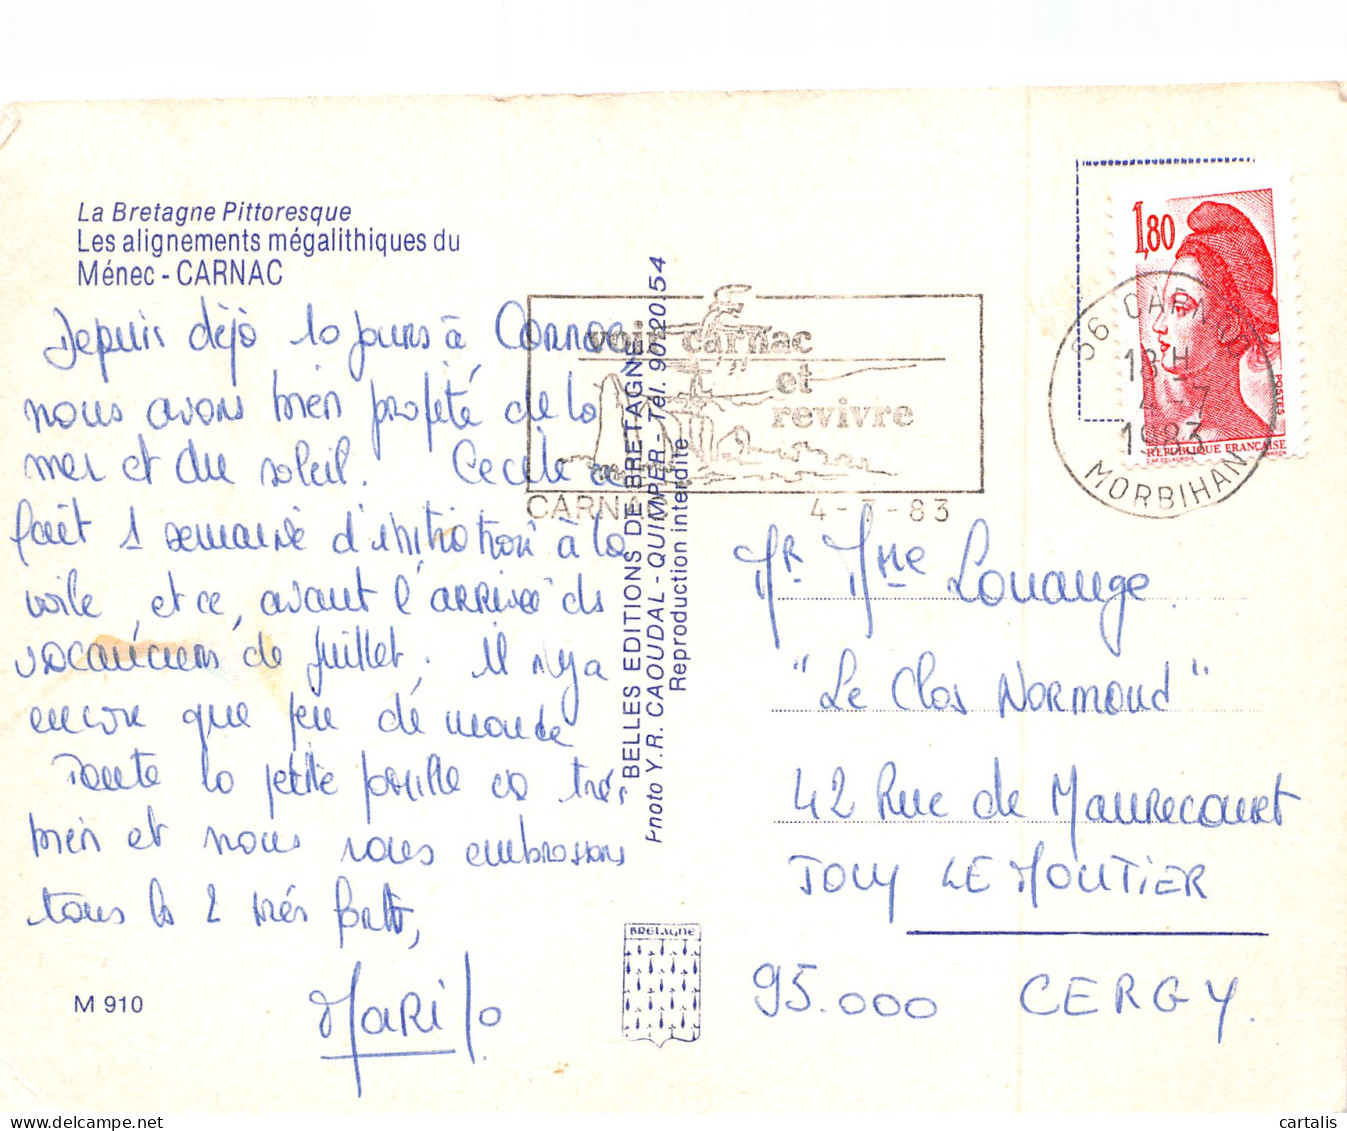 La Bretagne Pittoresque
Les alignements mégalithiques du
Ménec - CARNAC
Depuis déjà 10 jours à Carnac
nous avons bien profité de la
mer et du soleil. Cecile a
fait 1 semaine d'initiation à la
voile, et ce, avant l'arrivée des
vacanciers de juillet. Il n'y a
encore que peu de monde
Toute la petite famille va très
bien et nous vous embrassons
tous les 2 très fort,
M 910
BELLES EDITIONS DE BRETAGNE
Photo Y.R. CAOUDAL - QUIMPER - Tél. 90 20 54
Reproduction interdite
BRETAGNE
voir carnac
et
revivre
CARNAC 4-7-83
1,80
POSTES
REPUBLIQUE FRANÇAISE
56 CARNAC
18 H
4-7
1983
MORBIHAN
Mr Mme Louange
"Le Clos Normand"
42 Rue de Maurecourt
JOUY LE MOUTIER
95.000 CERGY.